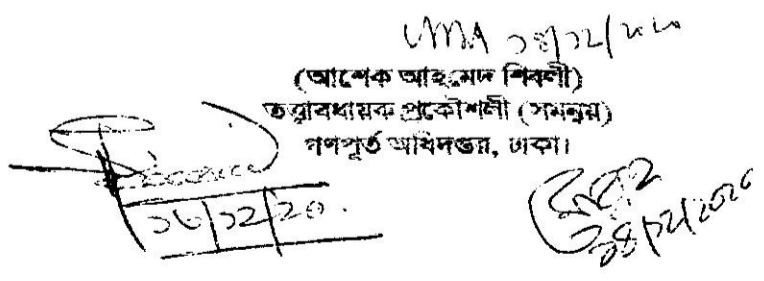 ১৪/১২/২০২০
(আশেক আহমেদ শিবলী)
তত্ত্বাবধায়ক প্রকৌশলী (সমন্বয়)
গণপূর্ত অধিদপ্তর, ঢাকা।
১৬/১২/২০.
১৪/১২/২০২০